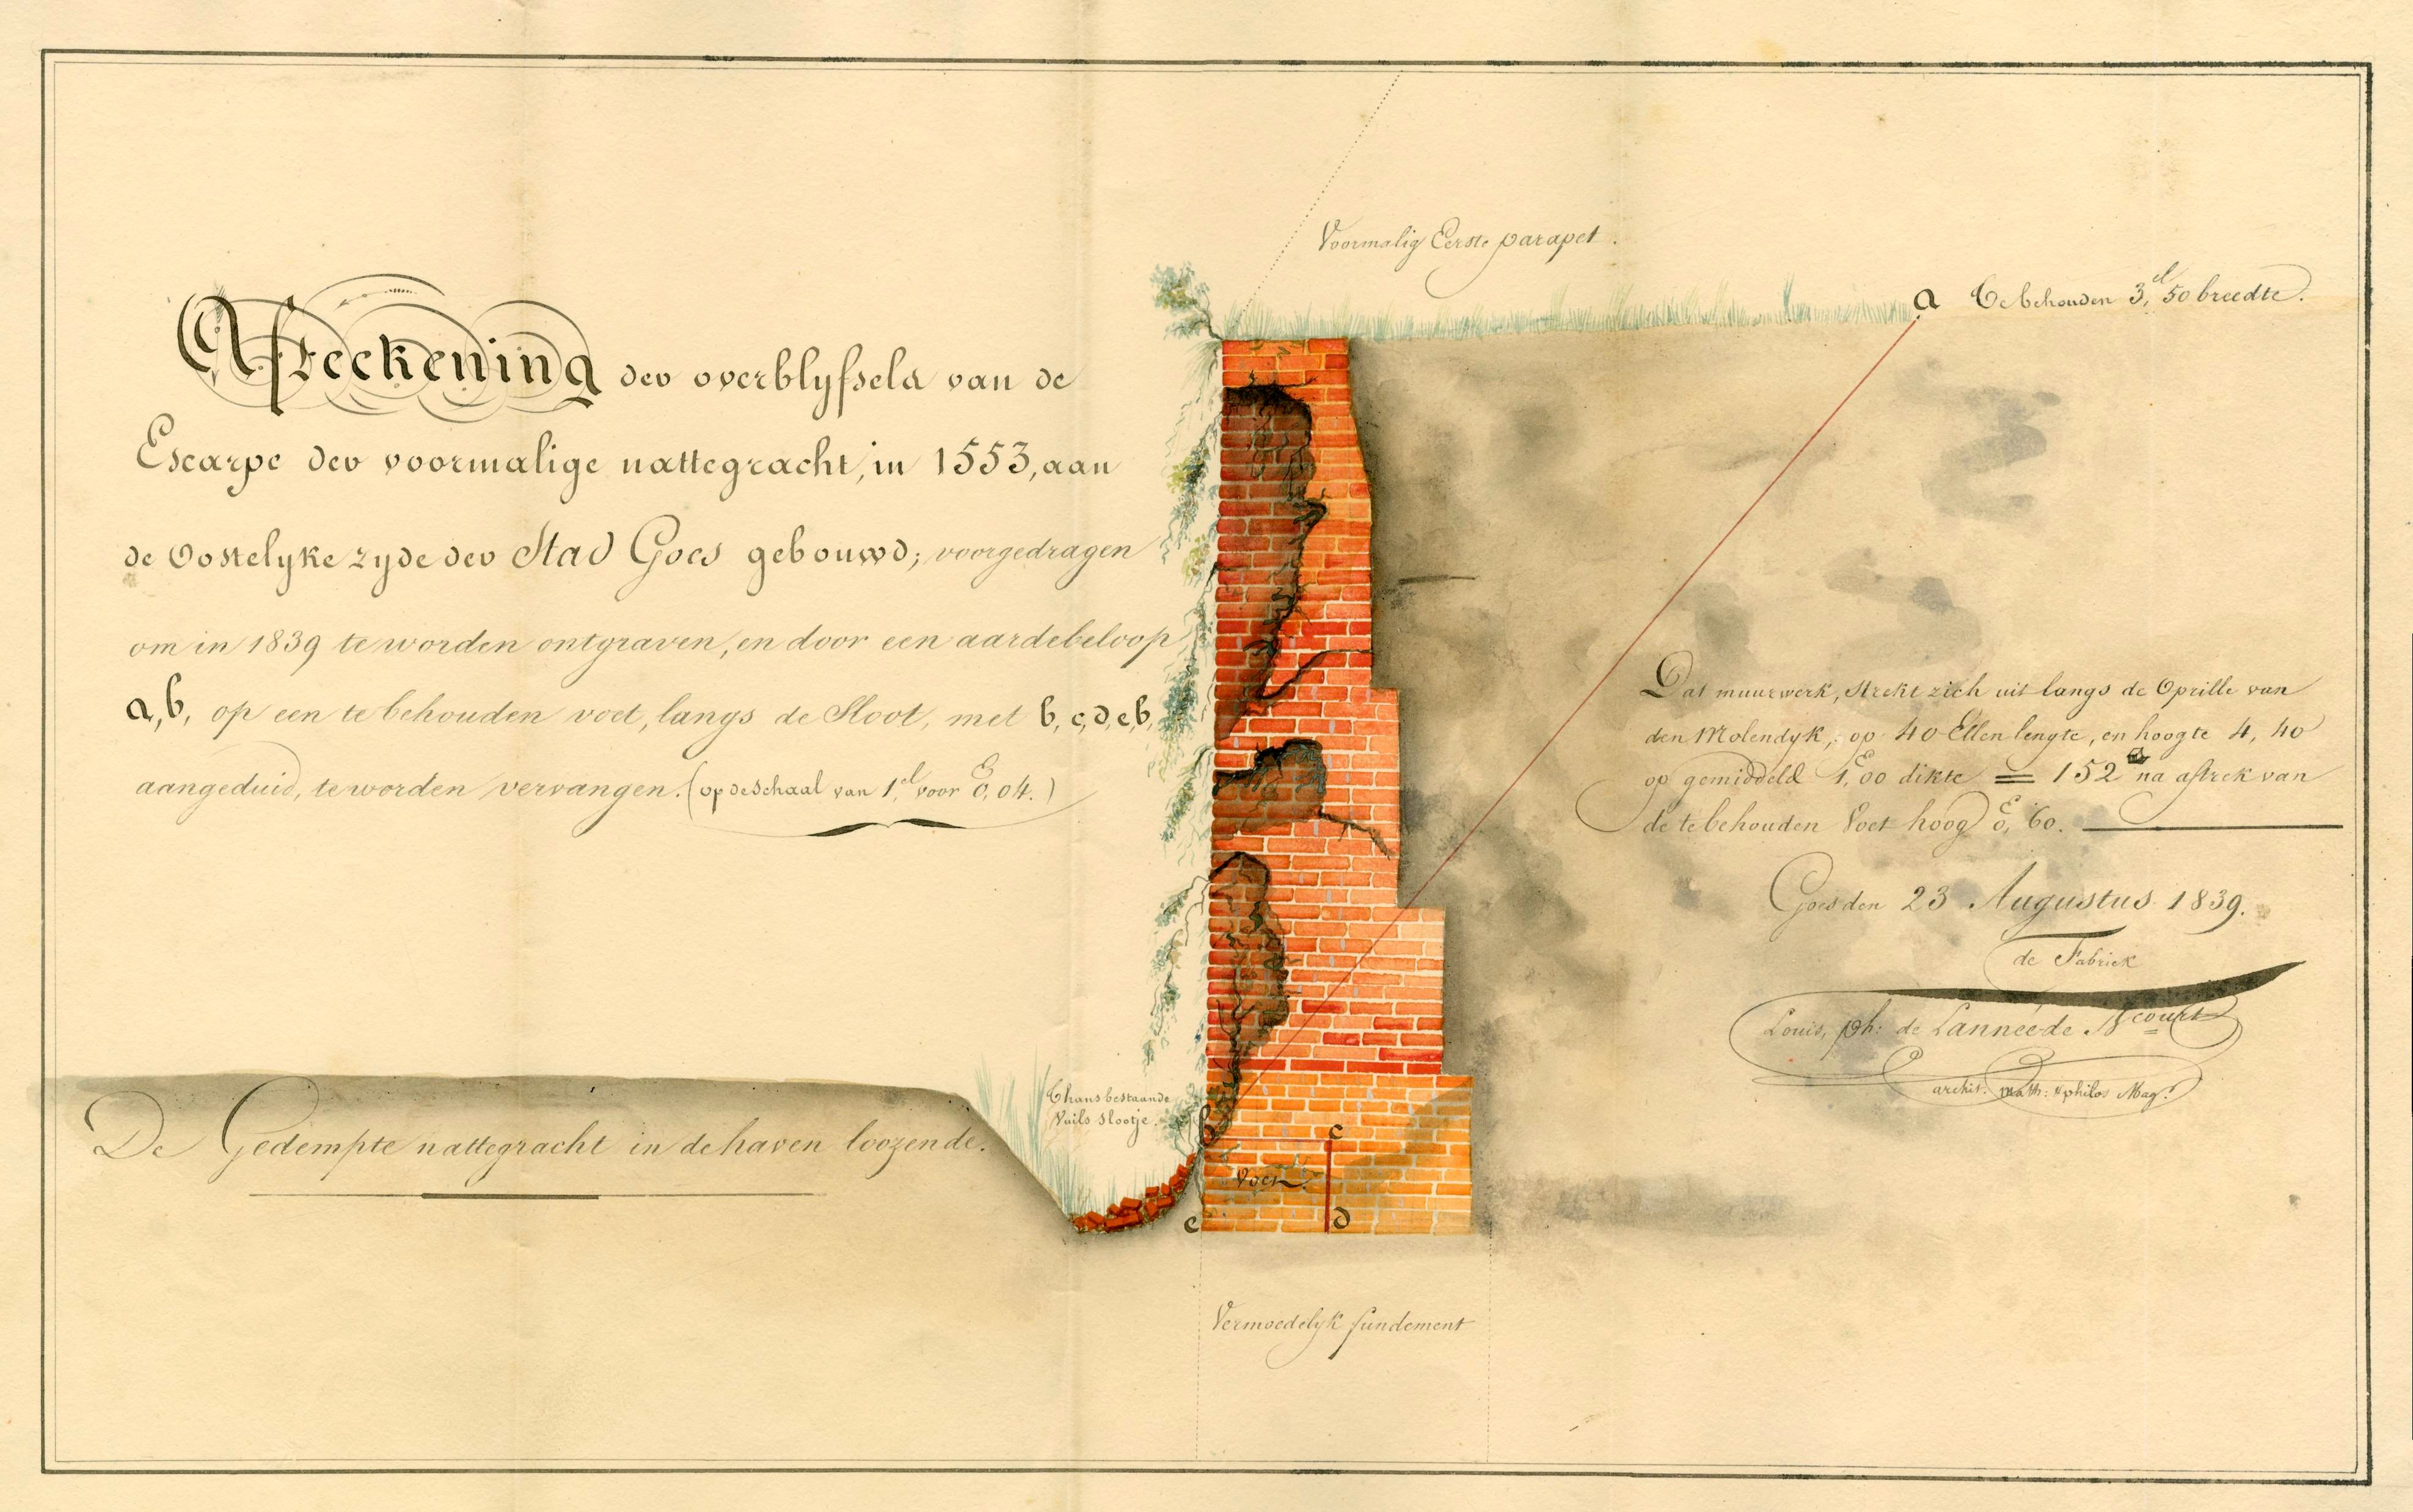 Voormalig Eerste parapet.
a Te behouden 3,el 50 breedte.
Afteekening der overblyfsels van de
Escarpe der voormalige nattegracht, in 1553, aan
de Oostelyke zyde der Stad Goes gebouwd; voorgedragen
om in 1839 te worden ontgraven, en door een aardebeloop
a, b, op een te behouden voet, langs de Sloot, met b, c, d, e, b,
aangeduid, te worden vervangen. (op de schaal van 1,el voor E0,04.)
Dat muurwerk, strekt zich uit langs de Oprille van
den Molendyk, op 40 Ellen lengte, en hoogte 4, 40
op gemiddeld 1,E00 dikte = 152 na aftrek van
de te behouden Voet hoog E0, 60.
Goes den 23 Augustus 1839.
de Fabriek
Louis, ph: de Lannée de Ncourt
archit. math: & philos Mag.
Thans bestaande
Vuils slootje.
De Gedempte nattegracht in de haven loozende.
b
c
Voet.
e
d
Vermoedelyk fundement